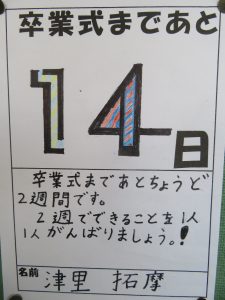 卒業式まであと
14
日
卒業式まであとちょうど
2週間です。
2週でできることを1人
1人がんばりましょう。!
名前 津里 拓摩